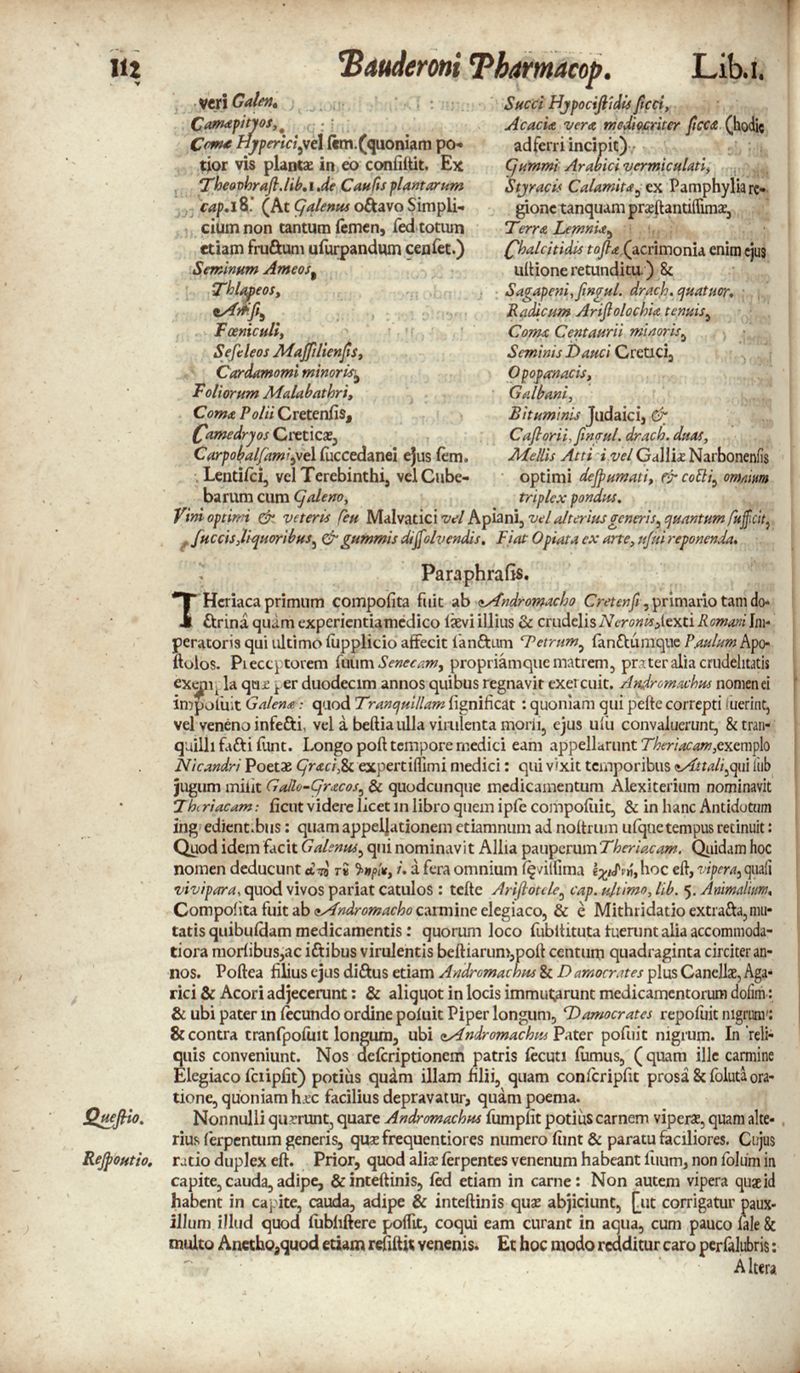 112 Bauderoni Pharmacop. Lib.1.
veri Galen.
Camæpityos,
Comæ Hyperici, vel sem. (quoniam po-
tior vis plantæ in eo consistit. Ex
Theophrast. lib. 1. de Causis plantarum
cap. 18. (At Galenus octavo Simpli-
cium non tantum semen, sed totum
etiam fructum usurpandum censet.)
Seminum Ameos,
Thlapeos,
Anisi,
Fœniculi,
Seseleos Massiliensis,
Cardamomi minoris,
Foliorum Malabathri,
Comæ Polii Cretensis,
Camedryos Creticæ,
Carpobalsami, vel succedanei ejus sem.
Lentisci, vel Terebinthi, vel Cube-
barum cum Galeno,
Succi Hypocistidis sicci,
Acaciæ veræ mediocriter siccæ (hodie
adferri incipit)
Gummi Arabici vermiculati,
Styracis Calamitæ, ex Pamphylia re-
gione tanquam præstantissimæ,
Terræ Lemniæ,
Chalcitidis tostæ (acrimonia enim ejus
ustione retunditu.) &
Sagapeni, singul. drach. quatuor.
Radicum Aristolochiæ tenuis,
Comæ Centaurii minoris,
Seminis Dauci Cretici,
Opopanacis,
Galbani,
Bituminis Judaici, &
Castorii, singul. drach. duas,
Mellis Atti i vel Galliæ Narbonensis
optimi despumati, & cocti, omnium
triplex pondus.
Vini optimi & veteris seu Malvatici vel Apiani, vel alterius generis, quantum sufficit,
succis, liquoribus, & gummis dissolvendis. Fiat Opiata ex arte, usui reponenda.
Paraphrasis.
THeriaca primum composita fuit ab Andromacho Cretensi, primario tam do-
ctrinâ quàm experientia medico sævi illius & crudelis Neronis, sexti Romani Im-
peratoris qui ultimo supplicio affecit sanctum Petrum, sanctúmque Paulum Apo-
stolos. Præceptorem suum Senecam, propriàmque matrem, præter alia crudelitatis
exempla quæ per duodecim annos quibus regnavit exercuit. Andromachus nomen ei
imposuit Galenæ: quod Tranquillam significat: quoniam qui peste correpti fuerint,
vel veneno infecti, vel à bestia ulla virulenta morsi, ejus usu convaluerunt, & tran-
quilli facti sunt. Longo post tempore medici eam appellarunt Theriacam, exemplo
Nicandri Poetæ Græci, & expertissimi medici: qui vixit temporibus Attali, qui sub
jugum misit Gallo-Græcos, & quodcunque medicamentum Alexiterium nominavit
Theriacam: sicut videre licet in libro quem ipse composuit, & in hanc Antidotum
ingredientibus: quam appellationem etiamnum ad nostrum usque tempus retinuit:
Quod idem facit Galenus, qui nominavit Allia pauperum Theriacam. Quidam hoc
nomen deducunt ἀπὸ τῦ θηρίυ, i. à fera omnium sævissima ἐχιδνή, hoc est, vipera, quasi
vivipara, quod vivos pariat catulos: teste Aristotele, cap. ultimo, lib. 5. Animalium.
Composita fuit ab Andromacho carmine elegiaco, & è Mithridatio extracta, mu-
tatis quibusdam medicamentis: quorum loco substituta fuerunt alia accommoda-
tiora morsibus, ac ictibus virulentis bestiarum, post centum quadraginta circiter an-
nos. Postea filius ejus dictus etiam Andromachus & Damocrates plus Canellæ, Aga-
rici & Acori adjecerunt: & aliquot in locis immutarunt medicamentorum dosim:
& ubi pater in secundo ordine posuit Piper longum, Damocrates reposuit nigrum:
& contra transposuit longum, ubi Andromachus Pater posuit nigrum. In reli-
quis conveniunt. Nos descriptionem patris secuti sumus, (quam ille carmine
Elegiaco scripsit) potiùs quàm illam filii, quam conscripsit prosâ & solutâ ora-
tione, quoniam hæc facilius depravatur, quàm poema.
Quæstio. Nonnulli quærunt, quare Andromachus sumpsit potiùs carnem viperæ, quam alte-
rius serpentum generis, quæ frequentiores numero sunt & paratu faciliores. Cujus
Responsio. ratio duplex est. Prior, quod aliæ serpentes venenum habeant suum, non solùm in
capite, cauda, adipe, & intestinis, sed etiam in carne: Non autem vipera quæ id
habent in capite, cauda, adipe & intestinis quæ abjiciunt, [ut corrigatur paux-
illum illud quod subsistere possit, coqui eam curant in aqua, cum pauco sale &
multo Anetho, quod etiam resistit venenis. Et hoc modo redditur caro persalubris:
Altera